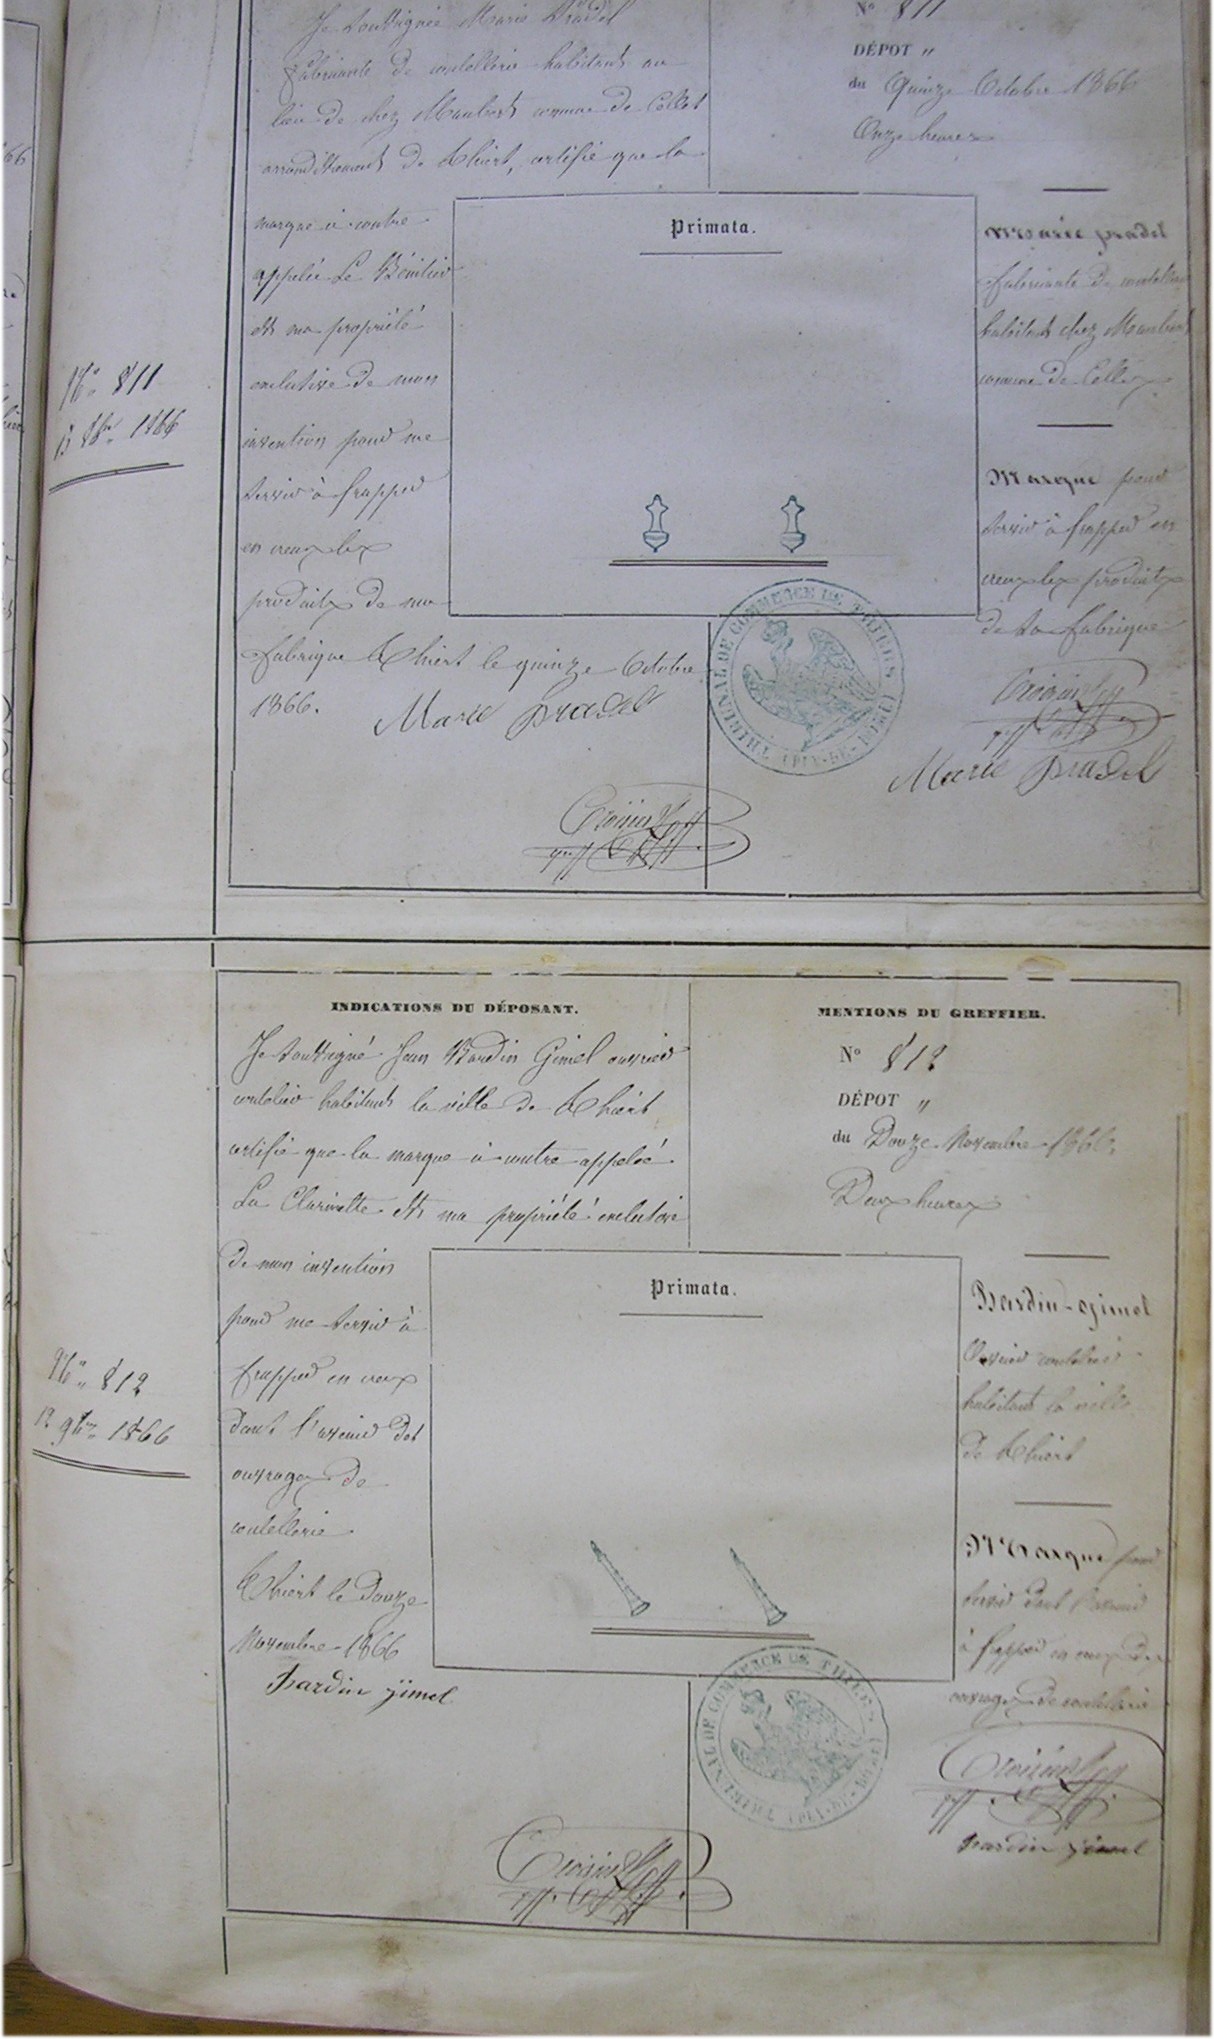 Je soussignée Marie Pradel
fabricante de coutellerie habitant au
lieu de chez Maubert commune de Celles
arrondissement de Thiers, certifie que la
marque ci contre
appelée Le Bénitier
est ma propriété
exclusive de mon
invention pour me
servir à frapper
en creux les
produits de ma
fabrique Thiers le quinze Octobre
1866.
Marie pradel
No 811
DÉPOT "
du Quinze Octobre 1866
Onze heures
Primata.
Marie pradel
fabricante de coutellerie
habitant chez Maubert
commune de Celles
Marque pour
servir à frapper en
creux les produits
de sa fabrique
Marie pradel
TRIBUNAL DE COMMERCE DE THIERS (PUY-DE-DOME)
No 811
15 8bre 1866
INDICATIONS DU DÉPOSANT.
Je soussigné Jean Bardin Gimel ouvrier
coutelier habitant la ville de Thiers
certifie que la marque ci contre appelée
La Clarinette est ma propriété exclusive
de mon invention
pour me servir à
frapper en creux
dans l'avenir des
ouvrages de
coutellerie
Thiers le Douze
Novembre 1866
Bardin gimel
MENTIONS DU GREFFIER.
No 812
DÉPOT "
du Douze Novembre 1866
Deux heures
Primata.
Bardin-gimel
Ouvrier coutelier
habitant la ville
de Thiers
Marque pour
servir dans l'avenir
à frapper en creux des
ouvrages de coutellerie
bardin gimel
TRIBUNAL DE COMMERCE DE THIERS (PUY-DE-DOME)
No 812
12 9bre 1866